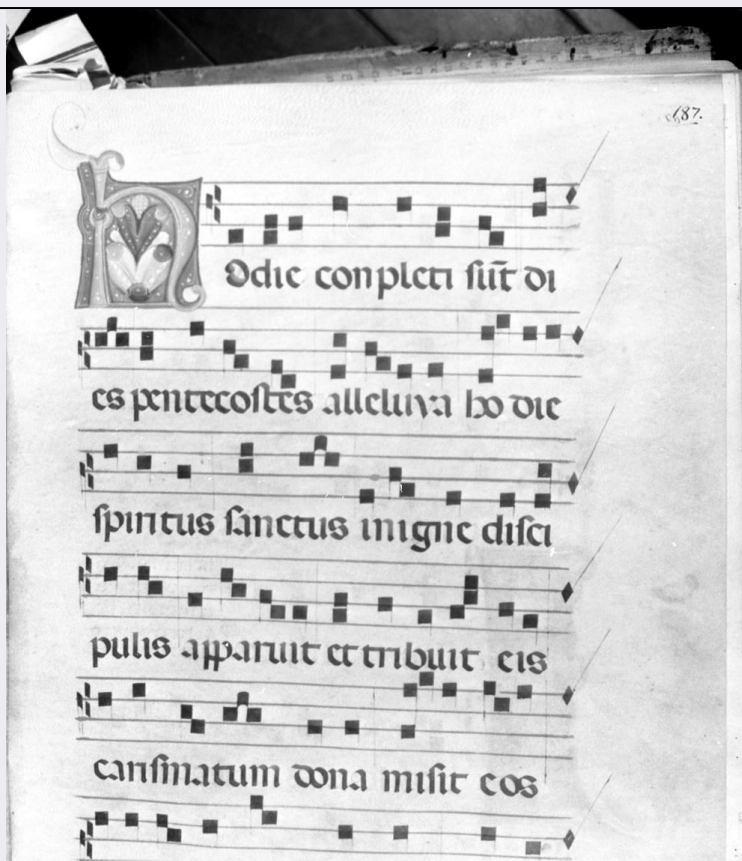 187.
Hodie conpleti sūt di
es pentecostes alleluya ho die
spiritus sanctus in igne disci
pulis apparuit et tribuit eis
carismatum dona misit eos